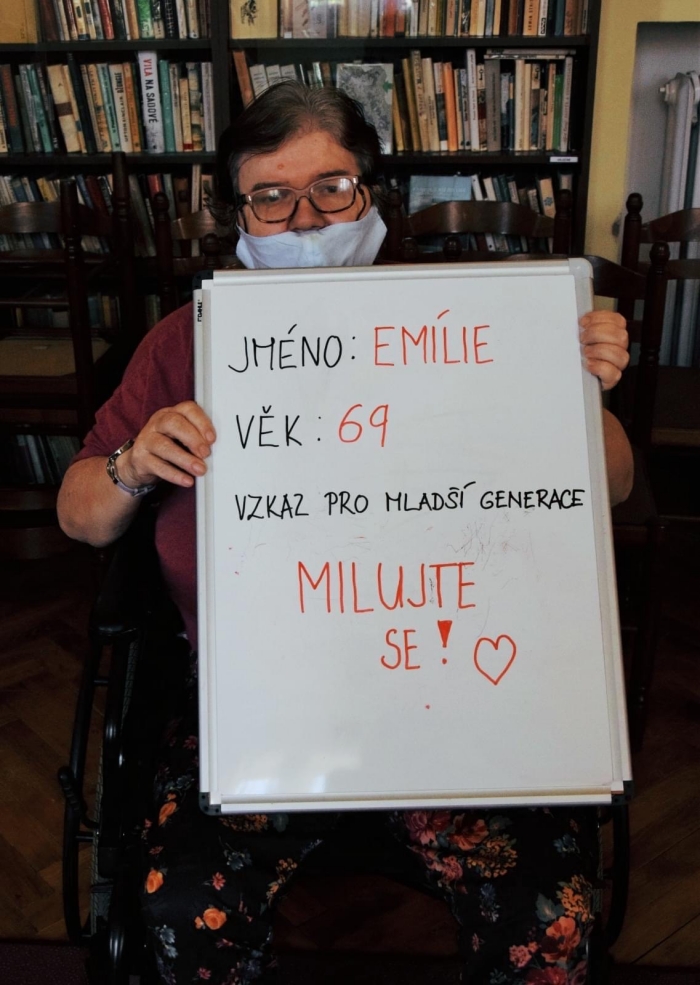 VILA NA SADOVÉ
JMÉNO: EMÍLIE
VĚK: 69
VZKAZ PRO MLADŠÍ GENERACE
MILUJTE
SE! ♡